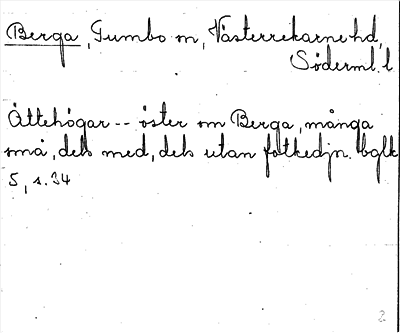 Berga, Tumbo sn, Västerrekarne hd,
Söderml. l
Ättehögar -- öster om Berga, många
små, dels med, dels utan fotkedjn. bglk
5, s. 34
2